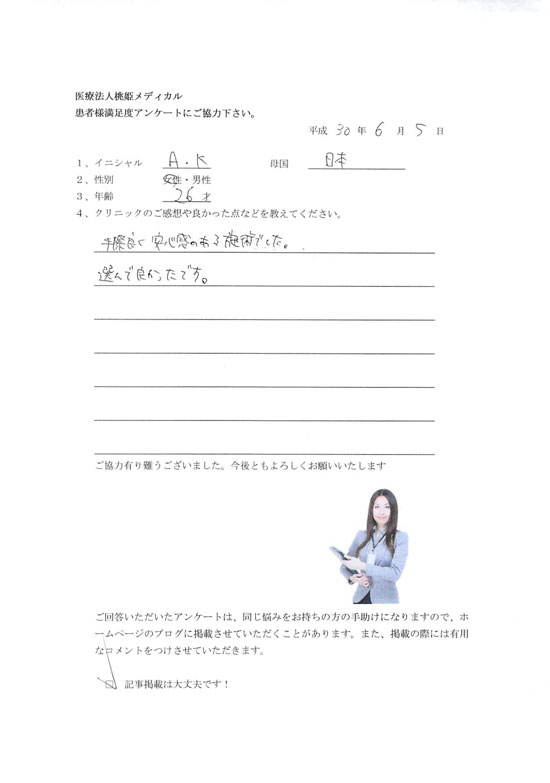 医療法人桃姫メディカル
患者様満足度アンケートにご協力下さい。
平成 30 年 6 月 5 日
1、イニシャル A.K 母国 日本
2、性別 女性・男性
3、年齢 26 才
4、クリニックのご感想や良かった点などを教えてください。
手際良く安心感のある施術でした。
選んで良かったです。
ご協力有り難うございました。今後ともよろしくお願いいたします
ご回答いただいたアンケートは、同じ悩みをお持ちの方の手助けになりますので、ホ
ームページのブログに掲載させていただくことがあります。また、掲載の際には有用
なコメントをつけさせていただきます。
☑ 記事掲載は大丈夫です！